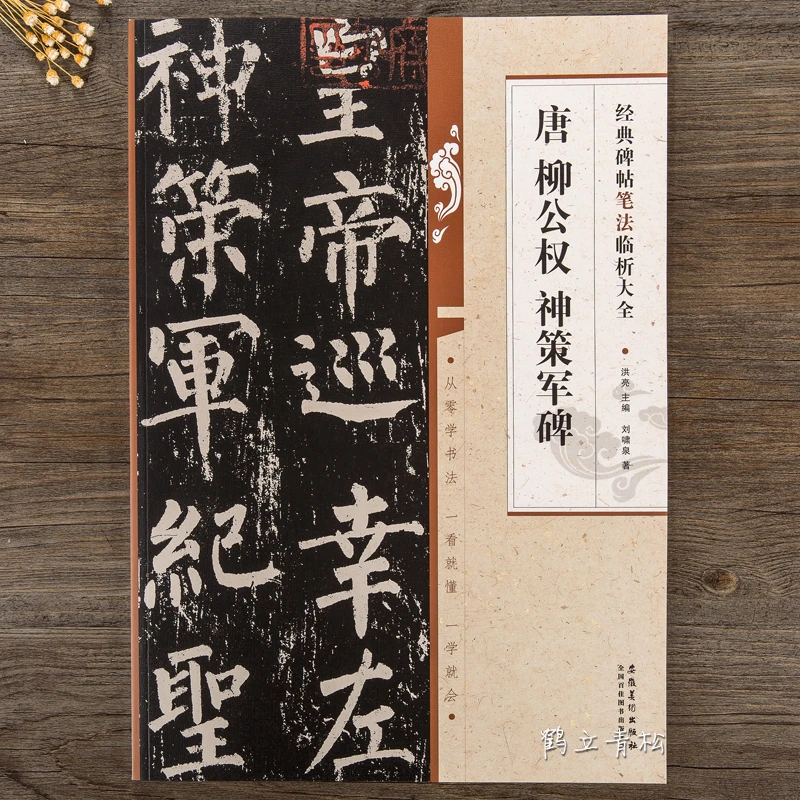 皇帝巡幸左
神策軍紀聖
经典碑帖笔法临析大全
洪亮 主编 刘啸泉 著
唐 柳公权 神策军碑
从零学书法 一看就懂 一学就会
安徽美术出版社
全国百佳图书出版
鹤立青松